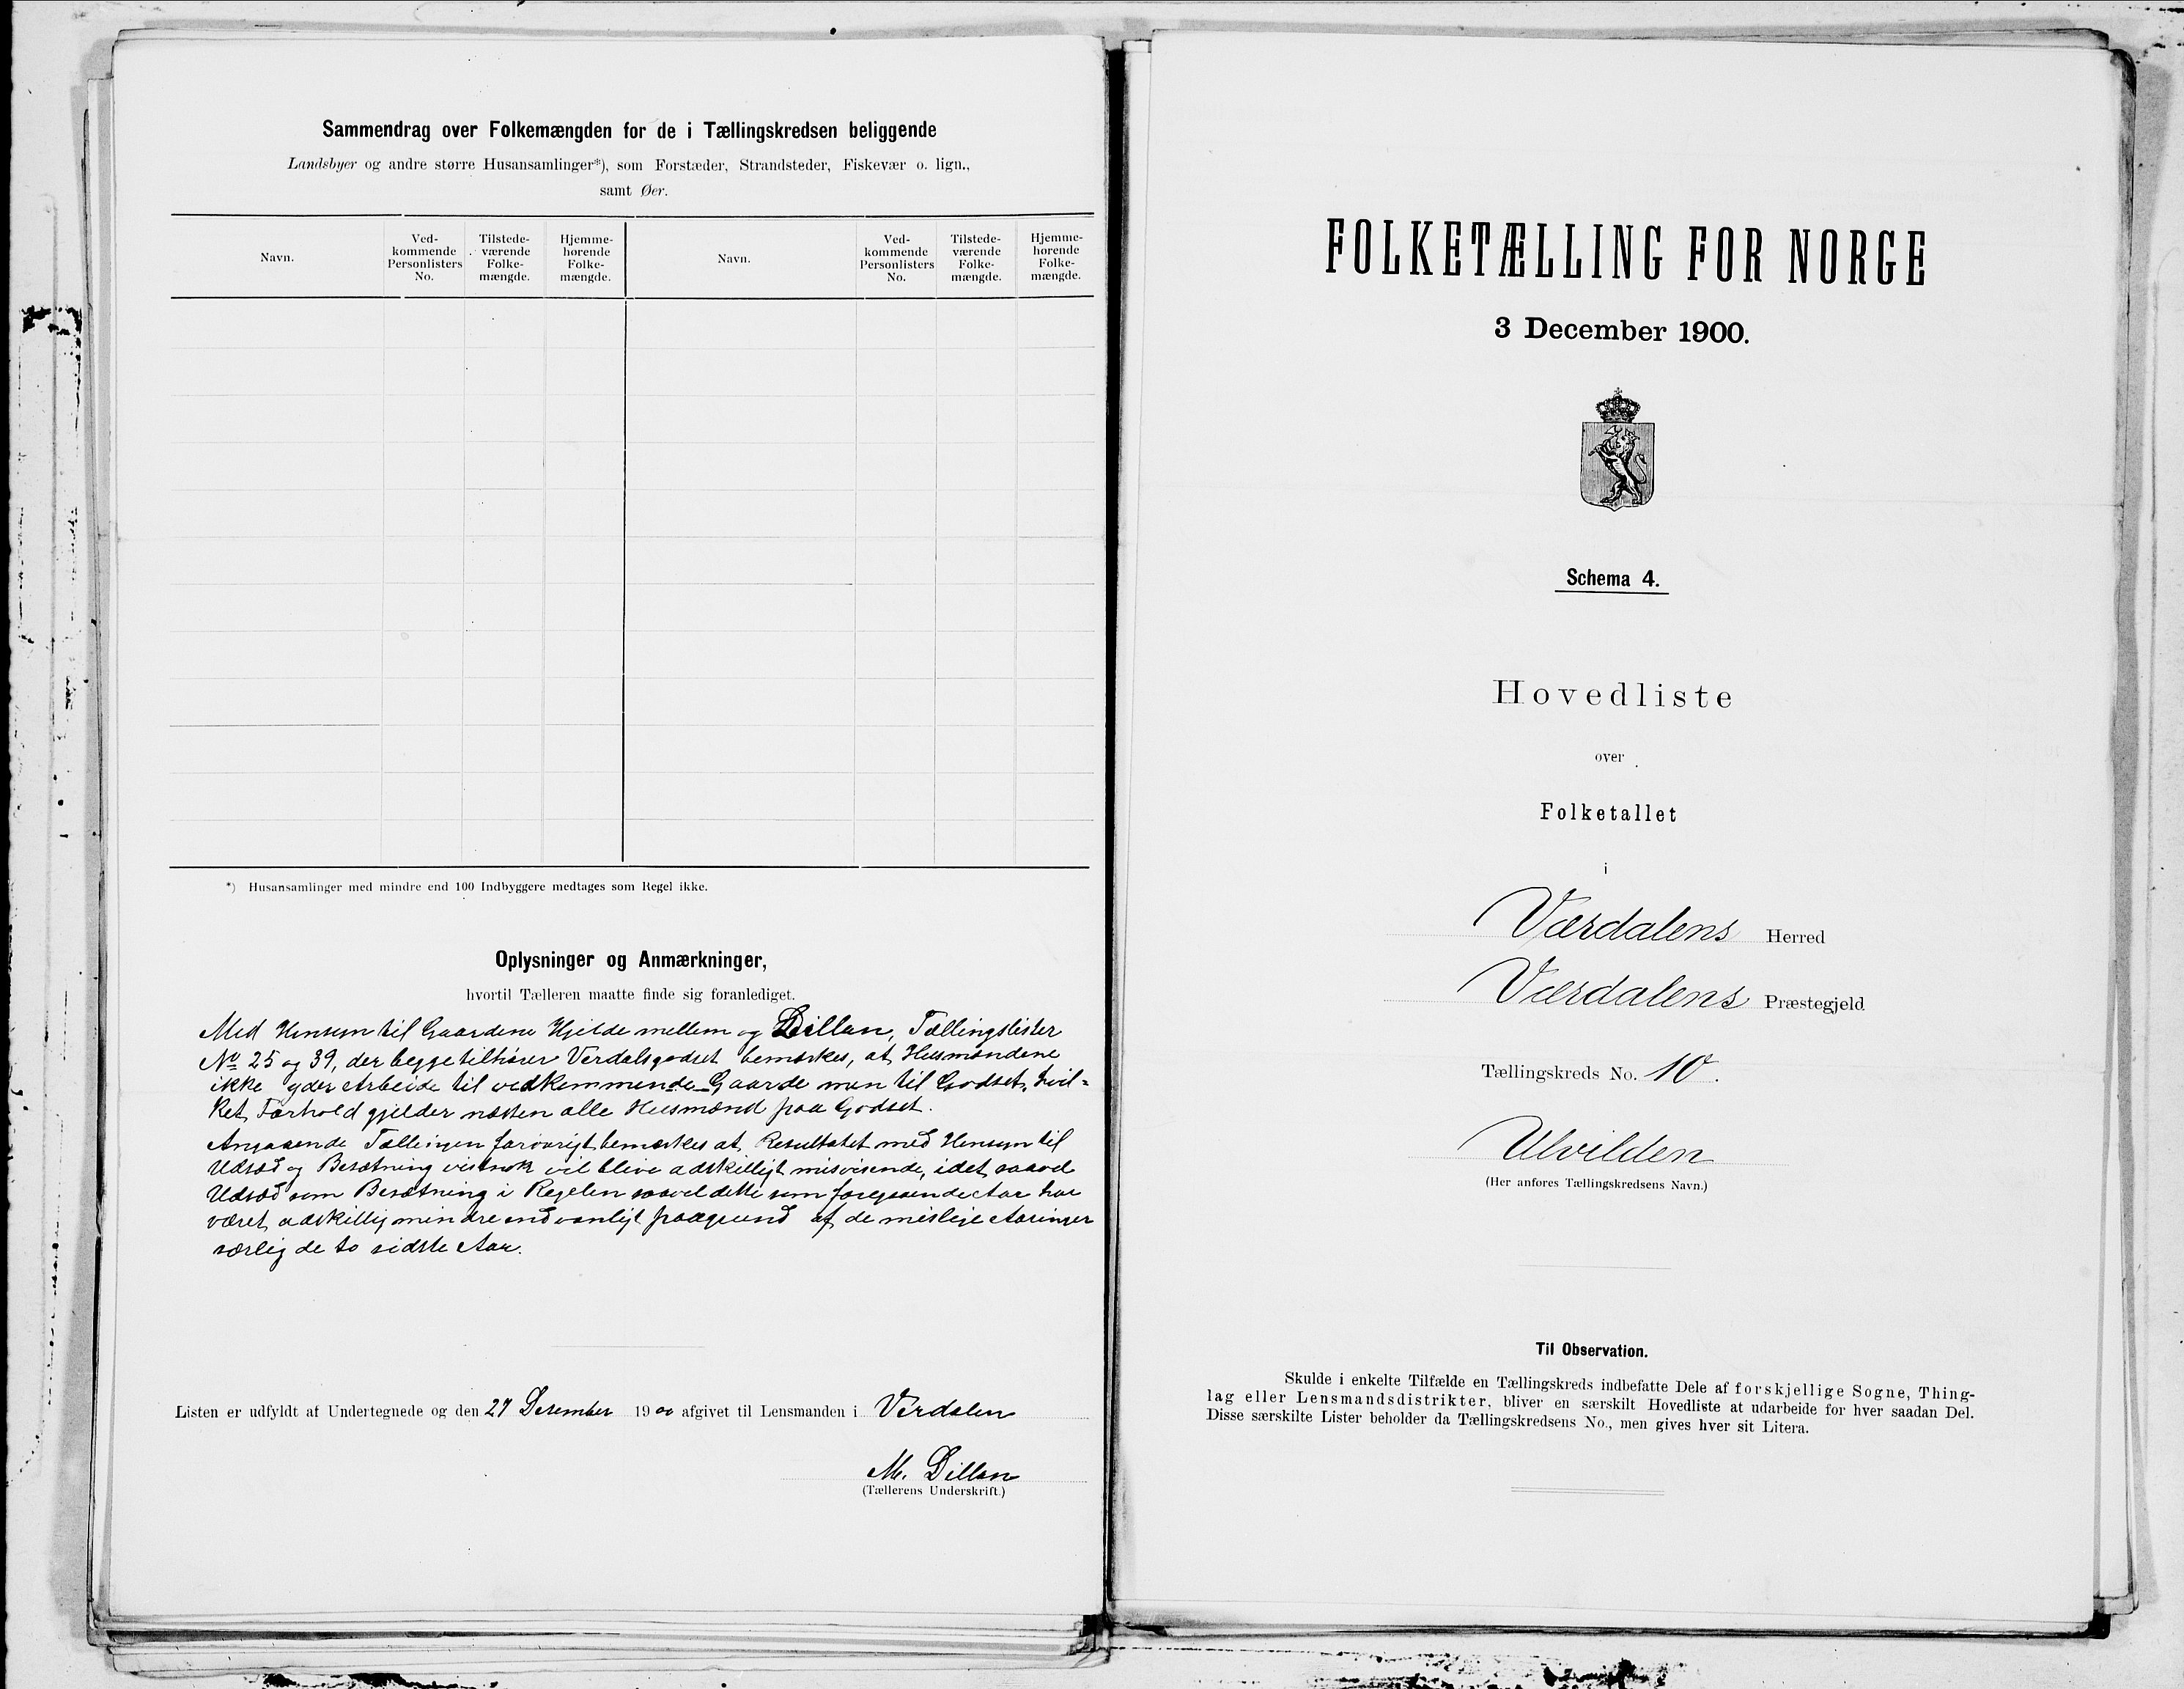 Sammendrag over Folkemængden for de i Tællingskredsen beliggende
Landsbyer og andre større Husansamlinger*), som Forstæder, Strandsteder, Fiskevær o. lign.,
samt Øer.
Navn.
Ved-
kommende
Personlisters
No.
Tilstede-
værende
Folke-
mængde.
Hjemme-
hørende
Folke-
mængde.
Navn.
Ved-
kommende
Personlisters
No.
Tilstede-
værende
Folke-
mængde.
Hjemme-
hørende
Folke-
mængde.
*) Husansamlinger med mindre end 100 Indbyggere medtages som Regel ikke.
Oplysninger og Anmærkninger,
hvortil Tælleren maatte finde sig foranlediget.
Med Hensyn til Gaardene Hjelde mellem og Dillan, Tællingslister
No 25 og 39, der begge tilhører Verdalsgodset bemærkes, at Husmændene
ikke yder Arbeide til vedkommende Gaarde men til Godset, hvil-
ket Forhold gjelder næsten alle Husmænd paa Godset.
Angaaende Tællingen forøvrigt bemærkes at Resultatet med Hensyn til
Udsæd og Besætning vistnok vil blive adskilligt misvisende, idet saavel
Udsæd som Besætning i Regelen saavel dette som foregaaende Aar har
været adskillig mindre end vanligt paagrund af de mislige Aaringer
særlig de to sidste Aar.
Listen er udfyldt af Undertegnede og den 27 Desember 1900 afgivet til Lensmanden i Verdalen
M. Dillan
(Tællerens Underskrift.)
FOLKETÆLLING FOR NORGE
3 December 1900.
Schema 4.
Hovedliste
over
Folketallet
i
Værdalens Herred
Værdalens Præstegjeld
Tællingskreds No. 10.
Ulvilden
(Her anføres Tællingskredsens Navn.)
Til Observation.
Skulde i enkelte Tilfælde en Tællingskreds indbefatte Dele af forskjellige Sogne, Thing-
lag eller Lensmandsdistrikter, bliver en særskilt Hovedliste at udarbeide for hver saadan Del.
Disse særskilte Lister beholder da Tællingskredsens No., men gives hver sit Litera.